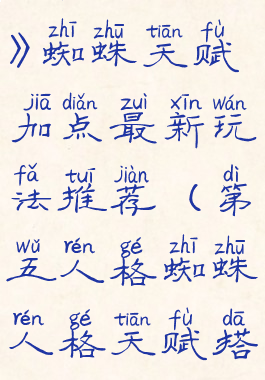 zhī zhū tiān fù
》蜘蛛天赋
jiā diǎn zuì xīn wán
加点最新玩
fǎ tuī jiàn dì
法推荐（第
wǔ rén gé zhī zhū
五人格蜘蛛
rén gé tiān fù dā
人格天赋搭